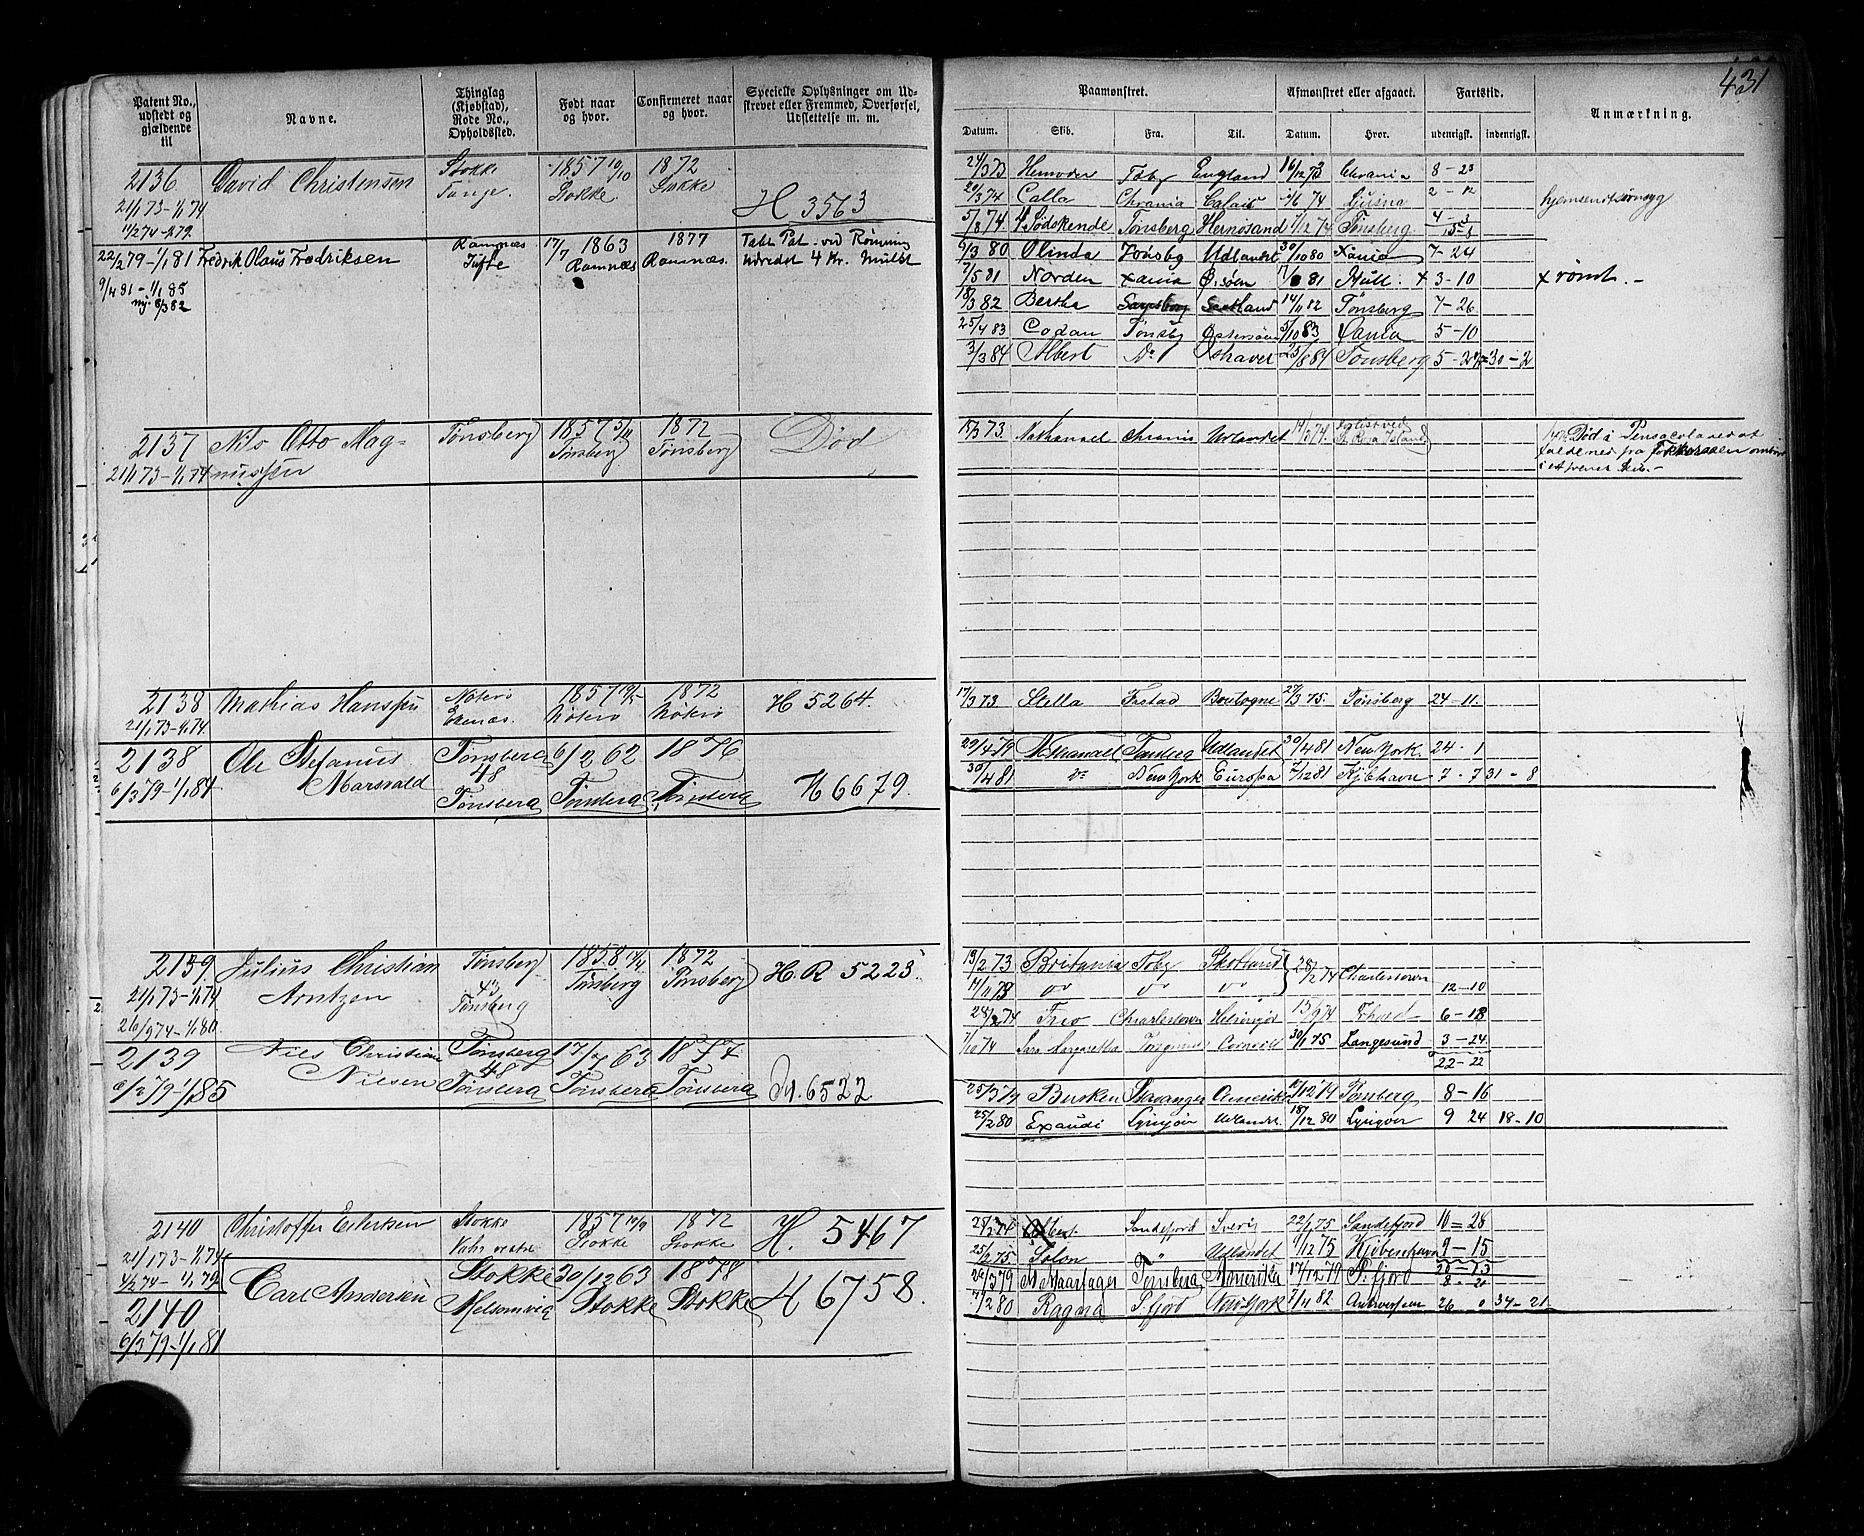 431
Patent No., udstedt og gjældende til
Navne.
Thinglag (Kjøbstad), Rode No., Opholdssted.
Født naar og hvor.
Confirmeret naar og hvor.
Specielle Oplysninger om Udskrevet eller Fremmed, Overførsel, Udslettelse m. m.
Paamønstret.
Afmønstret eller afgaaet.
Fartstid.
Anmærkning.
Datum. Skib. Fra. Til. Datum. Hvor. udenrigsk. indenrigsk.
2136 David Christensen Stokke 1857 10/10 1872
Stokke Stokke
21/1 73-1/1 74 H 3563
11/2 74-1/1 79.
24/3 73 Tbg England 16/12 73 Chrania 8-23
20/3 74 Calla Chrania Calais 74 2-12 hjemsendt
5/8 74 4 Sødskende Tønsberg Hernøsand 7/12 74 Tønsberg 4-3
22/2 79-1/1 81 Fredrik Olaus Fredriksen Ramnæs 17/7 1863 1877 Tabt Pat. ved Rømning
9/4 81-1/1 85 Tufte Ramnæs Ramnæs. 4 Kr. Mulkt
6/3 80 Olinda Tønsbg Udlandet 30/10 80 Xania 7-24
7/5 81 Norden Xania Ø.søen 81 Hull + 3-10 x rømt.-
18/3 82 Bertha 14/11 82 Tønsberg 7-26
25/4 83 Codan Tønsbg Østersøen 5/10 83 Xania 5-10
3/3 84 Albert Do Ishavet 25/8 84 Tønsberg 5-22 = 30-2
2137 Nils Otto Mag- Tønsberg 1857 5/11 1872 Død
21/1 73-1/1 74 nussen Tønsberg Tønsberg
15/3 73. Nathanael Chrania Udlandet 74. Død i Pensacola
2138 Mathias Hanssen Nøterø 1857 1872 H 5264.
21/1 73-1/1 74. Ekenæs. Nøterø Nøterø
17/3 73 Stella Frstad Boulogne 27/3 75. Tønsberg 24-11.
2138 Ole Stefanus Tønsberg 6/2 62 1876
6/3 79-1/1 84 Marsvald 48 H 6679.
Tønsberg Tønsberg Tønsberg
29/4 79 Nathanael Tønsberg Udlandet 30/4 81 New York. 24-1
30/4 81 Do New York Europa 7/12 81 Kjbhavn 7-7 31-8
2139 Julius Christian Tønsberg 1858 1872 H.R 5223
21/1 73-1/1 74 Arntzen 43 Tønsberg Tønsberg
26/9 74-1/1 80. Tønsberg
13/2 73 Britania Tbg Skotland 28/2 74 Charlestown
11/11 73 Do Do Do 12-10
28/2 74 Trio Charlestown Helsingør 15/9 74 6-18
7/10 74 Sara Margaretha 30/1 75 Langesund 3-24.
22-22
2139 Niels Christian Tønsberg 17/7 63 1877
6/3 79-1/1 85 Nilsen 48 H. 6522
Tønsberg Tønsberg Tønsberg
25/3 79 Busken Stavanger Amerika 79 Tønsberg 8-16
25/2 80 Exaudi Lyngør Udlandet. 18/12 80 Lyngør 9 24 18-10
2140 Christoffer Eilertsen Stokke 1857 1872 H. 5467
21/1 73-1/1 74 Stokke Stokke
4/2 74-1/1 79
28/2 74 Albert Sandefjord Sverig 22/1 75 Sandefjord 10=28
25/2 75 Solon " Udlandet 75 Kjøbenhavn 9-15
Carl Andersen Stokke 30/12 63 1878 H 6758.
2140 Melsomvig Stokke Stokke
6/3 79-1/1 81
26/3 79 Tønsberg Amerika 17/12 79 S.fjord 8-20
80 Ragna S.fjord New York 7/11 82 Antverpen 26-0 34-21